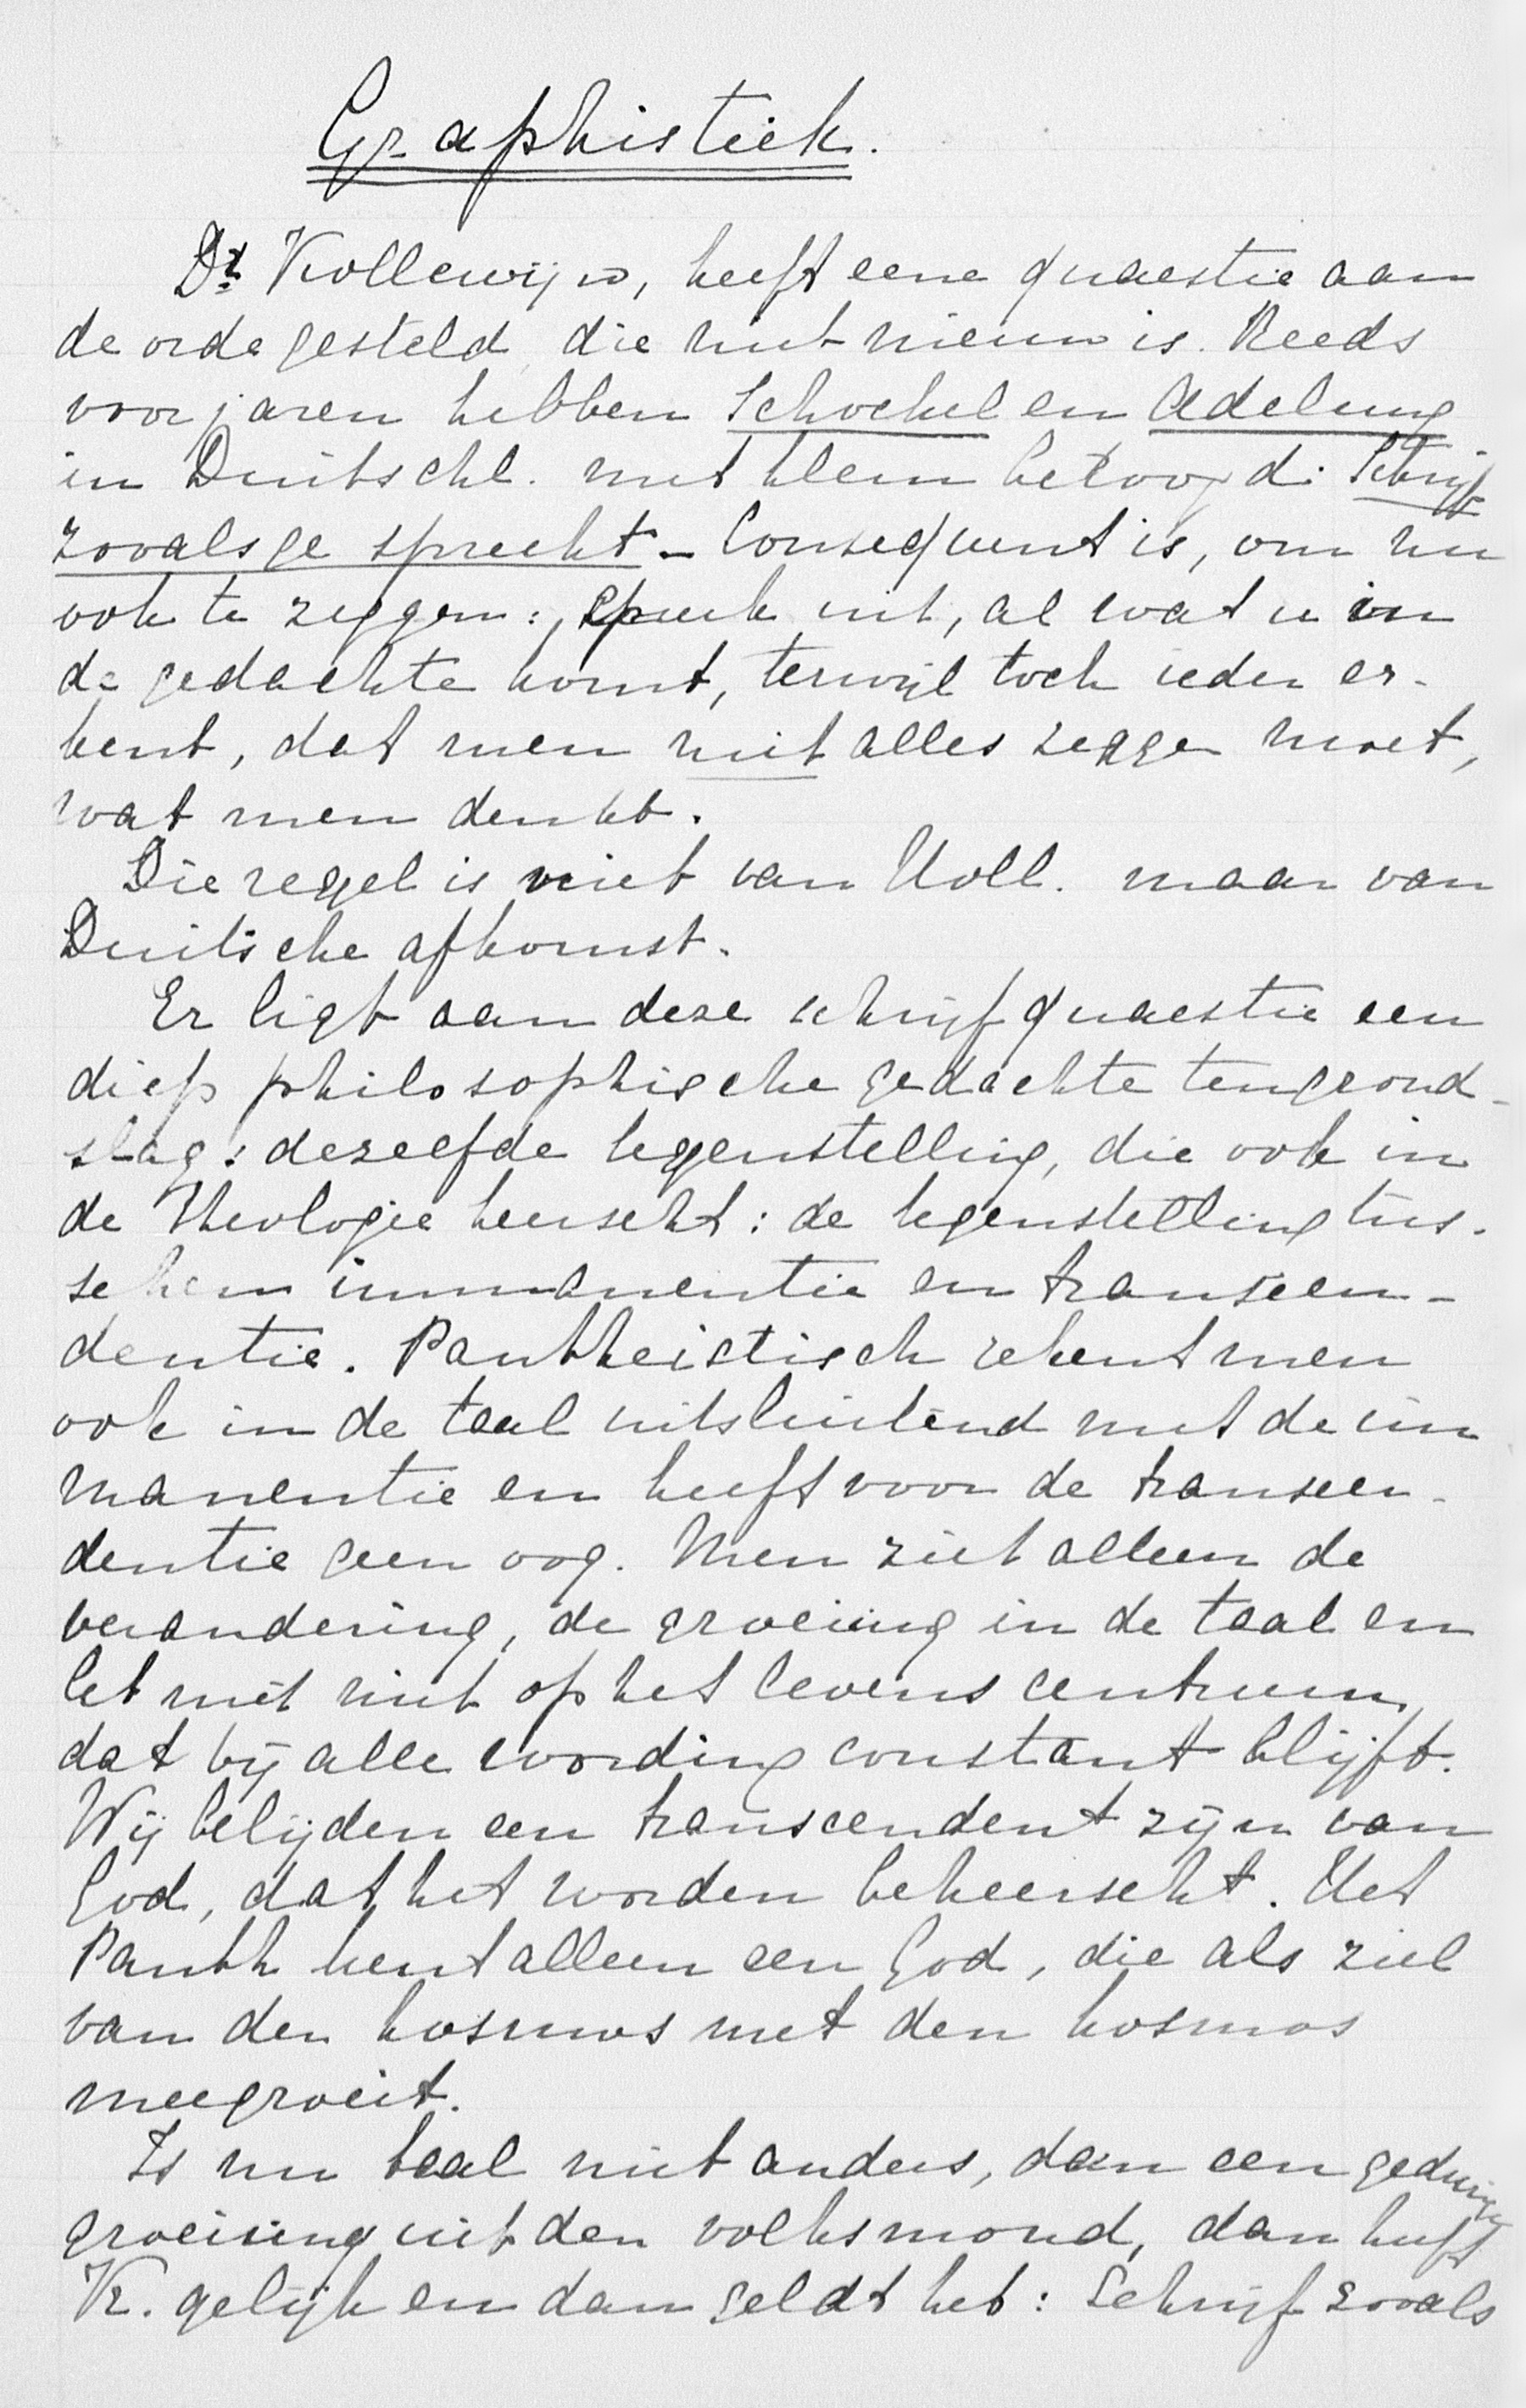 Graphistiek.
Dr. Kollewijn, heeft eene quaestie aan
de orde gesteld, die niet nieuw is. Reeds
voor jaren hebben Schochel en Adelung
in Duitschl. met klem betoogd: Schrijf
zooals ge spreekt – Consequent is, om nu
ook te zeggen: spreek uit, al wat u in
de gedachte komt, terwijl toch ieder er-
kent, dat men niet alles zeggen moet,
wat men denkt.
Die regel is niet van Koll. maar van
Duitsche afkomst.
Er ligt aan deze schrijfquaestie een
diep philosophische gedachte tengrond-
slag: dezelfde tegenstelling, die ook in
de Theologie heerscht: de tegenstelling tus-
schen immanentie en transcen-
dentie. Pantheistisch rekent men
ook in de taal uitsluitend met de im
manentie en heeft voor de transcen-
dentie geen oog. Men ziet alleen de
verandering, de groeiing in de taal en
let niet op het levenscentrum,
dat bij alle wording constant blijft.
Wij belijden een transcendent zijn van
God, dat het worden beheerscht. Het
Panth kent alleen een God, die als ziel
van den kosmos met den kosmos
meegroeit.
Is nu taal niet anders, dan een gedurige
groeiing uit den volksmond, dan heeft
K. gelijk en dan geldt het: Schrijf zooals